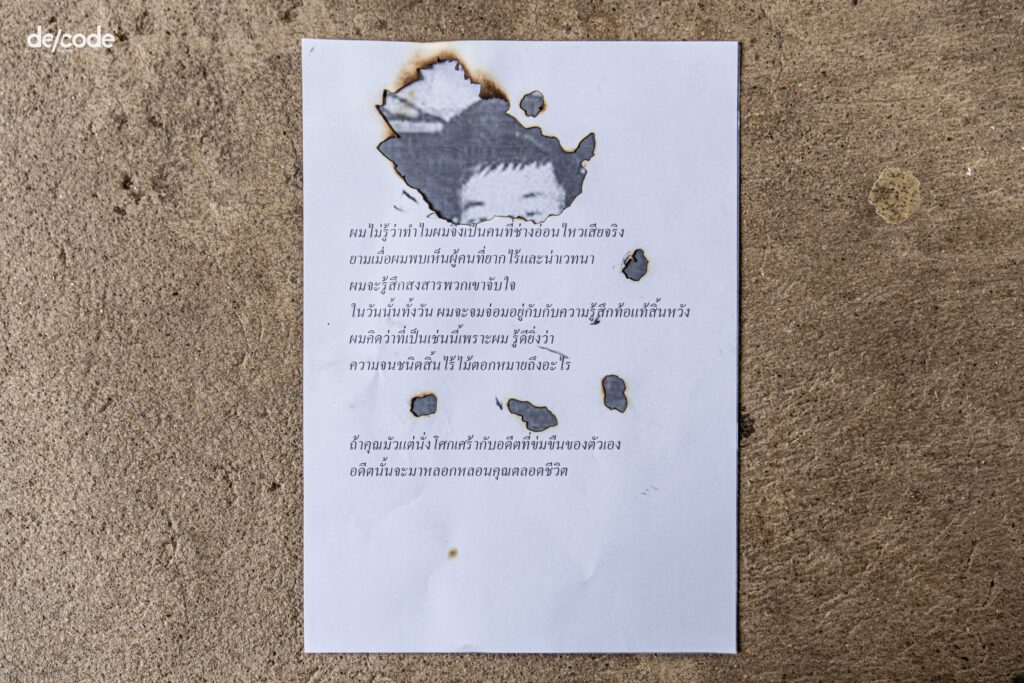 de/code
ผมไม่รู้ว่าทำไมผมจึงเป็นคนที่ช่างอ่อนไหวเสียจริง
ยามเมื่อผมพบเห็นผู้คนที่ยากไร้และน่าเวทนา
ผมจะรู้สึกสงสารพวกเขาจับใจ
ในวันนั้นทั้งวัน ผมจะจมจ่อมอยู่กับกับความรู้สึกท้อแท้สิ้นหวัง
ผมคิดว่าที่เป็นเช่นนี้เพราะผม รู้ดียิ่งว่า
ความจนชนิดสิ้นไร้ไม้ตอกหมายถึงอะไร
ถ้าคุณมัวแต่นั่งโศกเศร้ากับอดีตที่ข่มขืนของตัวเอง
อดีตนั้นจะมาหลอกหลอนคุณตลอดชีวิต